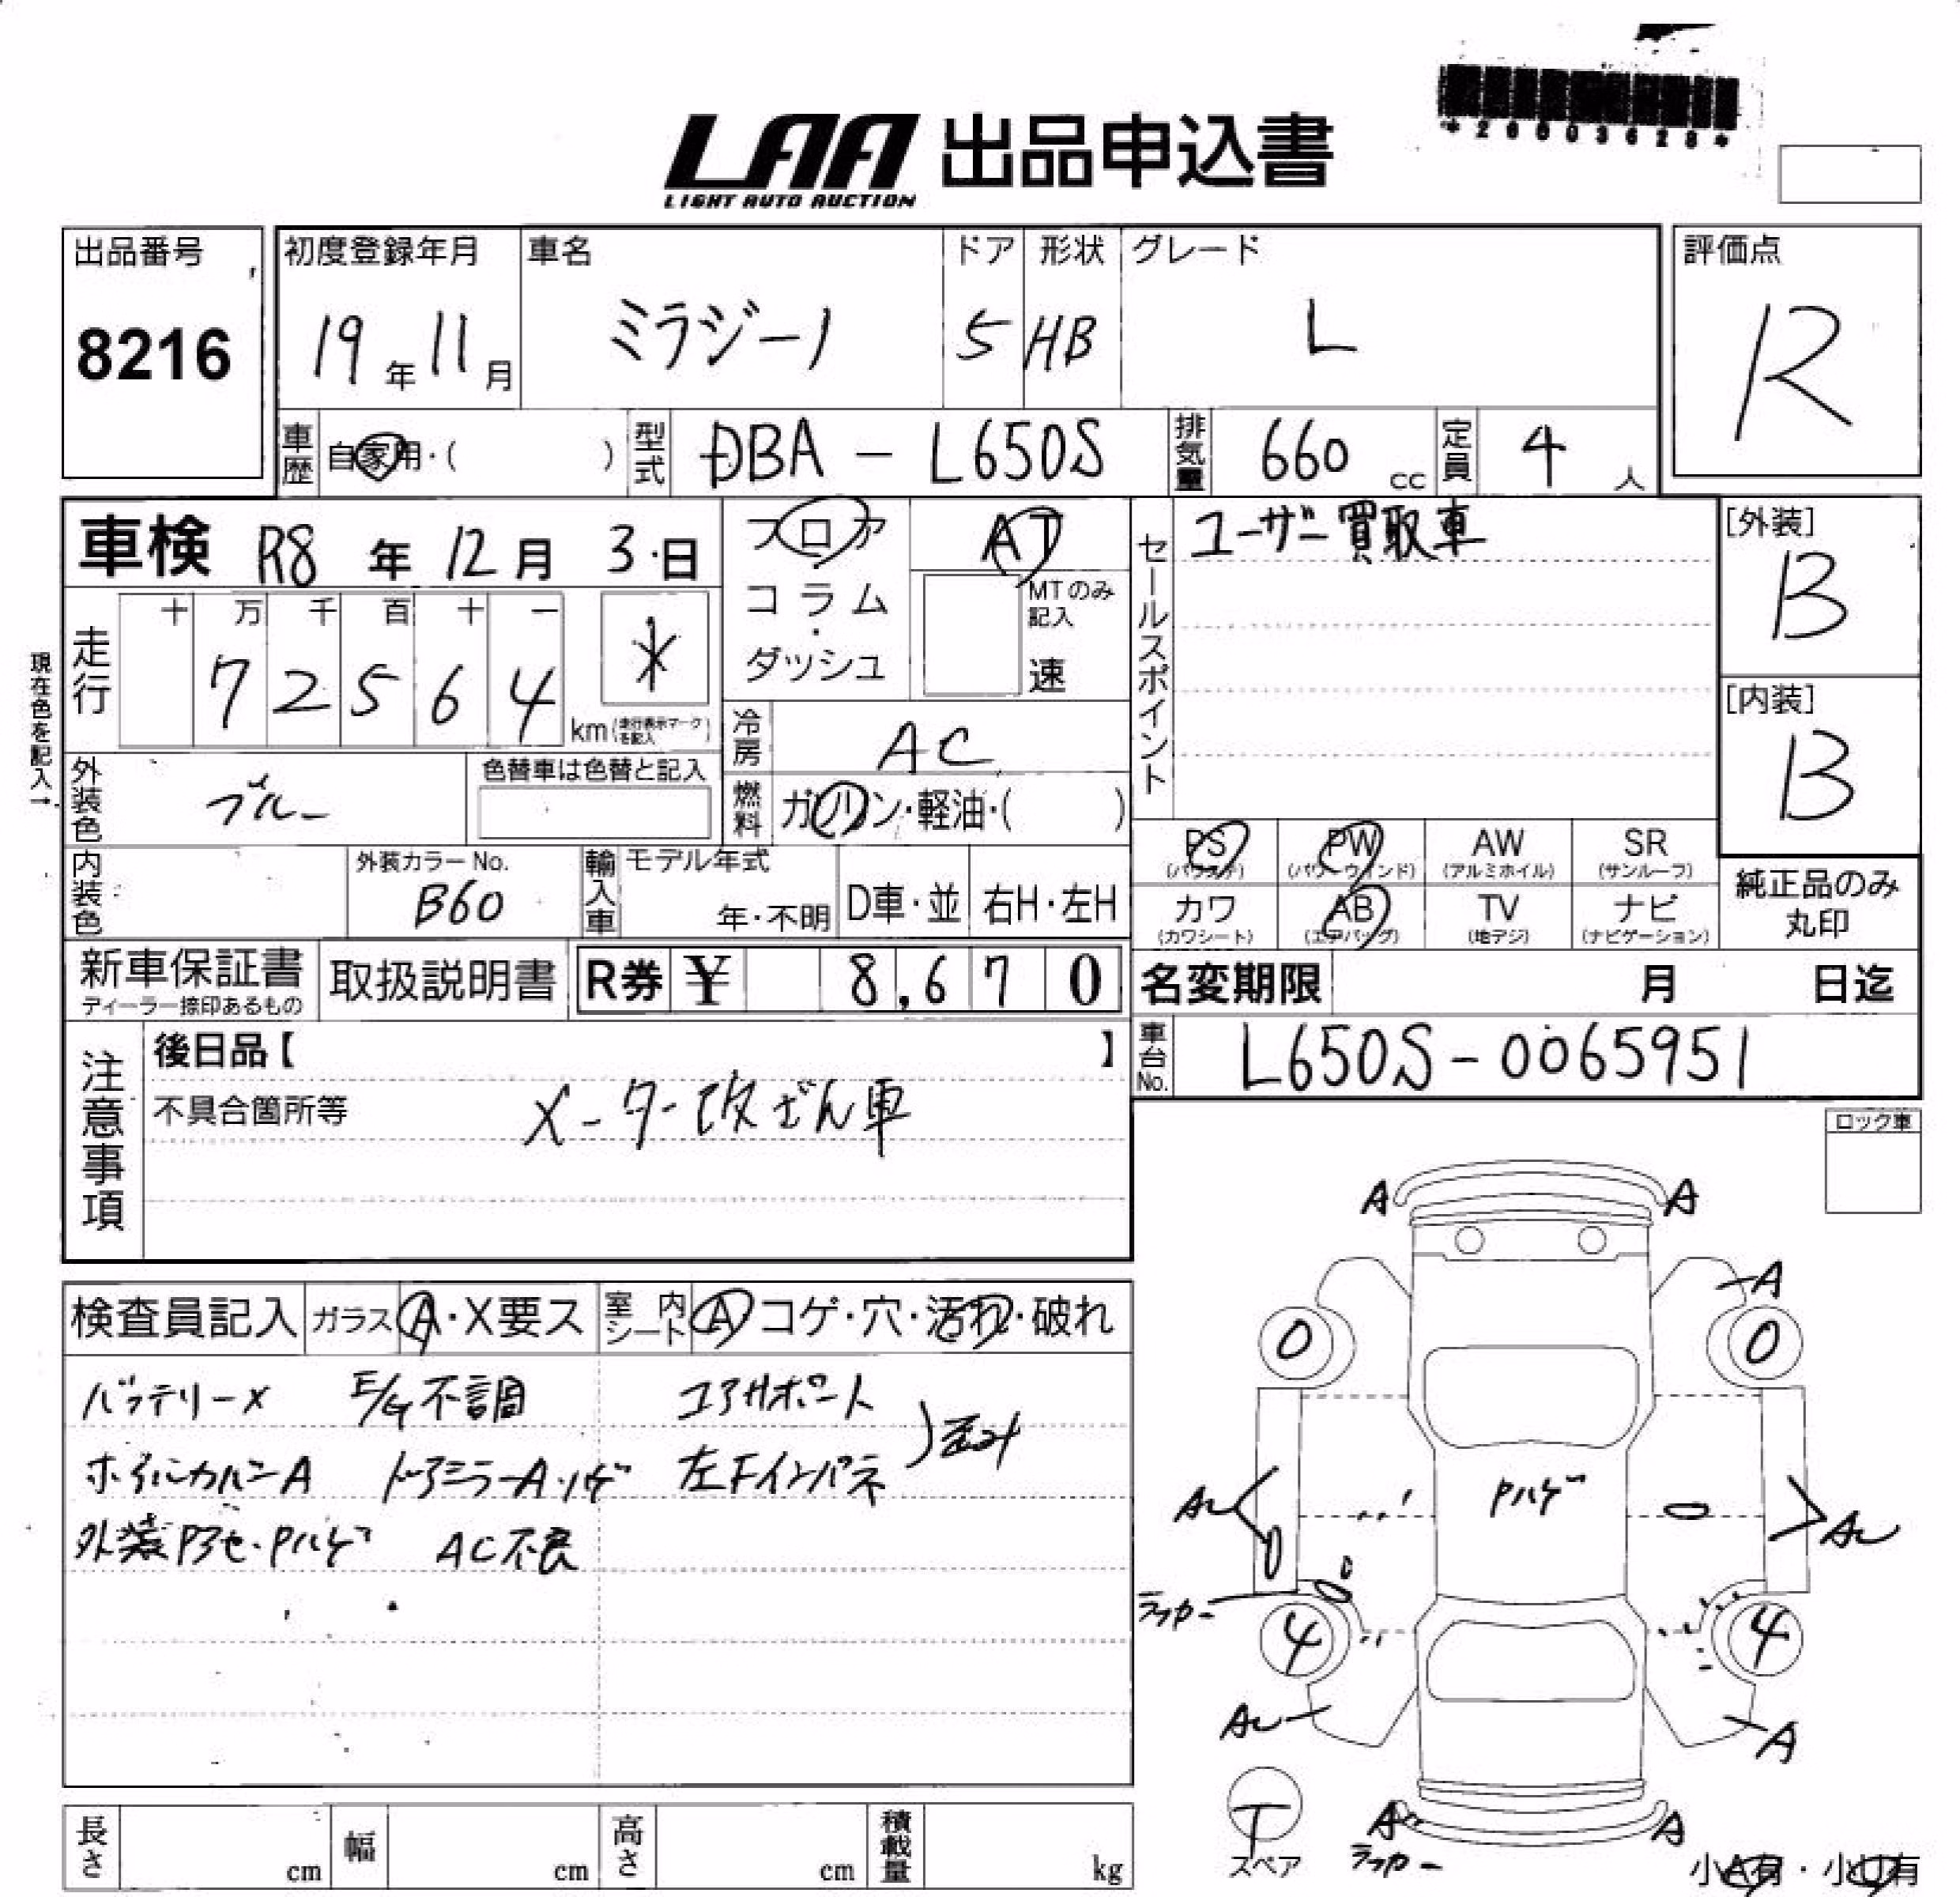 *26003628*
LAA 出品申込書
LIGHT AUTO AUCTION
出品番号
8216
初度登録年月
19年11月
車名
ミラジーノ
ドア
5
形状
HB
グレード
L
評価点
R
車歴
自家用・( )
型式
DBA - L650S
排気量
660 cc
定員
4 人
車検 R8年 12月 3日
フロア
コラム・ダッシュ
AT
MTのみ記入
速
セールスポイント
ユーザー買取車
[外装]
B
[内装]
B
現在色を記入→
走行
十 万 千 百 十 一
7 2 5 6 4
km (走行表示マークを記入)
*
冷房
AC
外装色
ブルー
色替車は色替と記入
燃料
ガソリン・軽油・( )
PS (パワステ)
PW (パワーウインド)
AW (アルミホイル)
SR (サンルーフ)
カワ (カワシート)
AB (エアバッグ)
TV (地デジ)
ナビ (ナビゲーション)
純正品のみ丸印
内装色
外装カラーNo.
B60
輸入車
モデル年式
年・不明
D車・並
右H・左H
新車保証書
ディーラー捺印あるもの
取扱説明書
R券 ¥ 8,670
名変期限 月 日迄
注意事項
後日品【 】
不具合箇所等
メーター改ざん車
車台No.
L650S-0065951
ロック車
検査員記入
ガラス A・X要ス
室内シート A コゲ・穴・汚れ・破れ
バッテリーX E/G不調 コアサポート
ホイルカバーA ドアミラーA・ハゲ 左Fインパネ
外装Pアセ・Pハゲ AC不良
A A
A
0 0
Pハゲ
AU AU
ラッカー
4 4
AU A
T
スペア
A A
ラッカー
小A有・小U有
長さ cm
幅 cm
高さ cm
積載量 kg